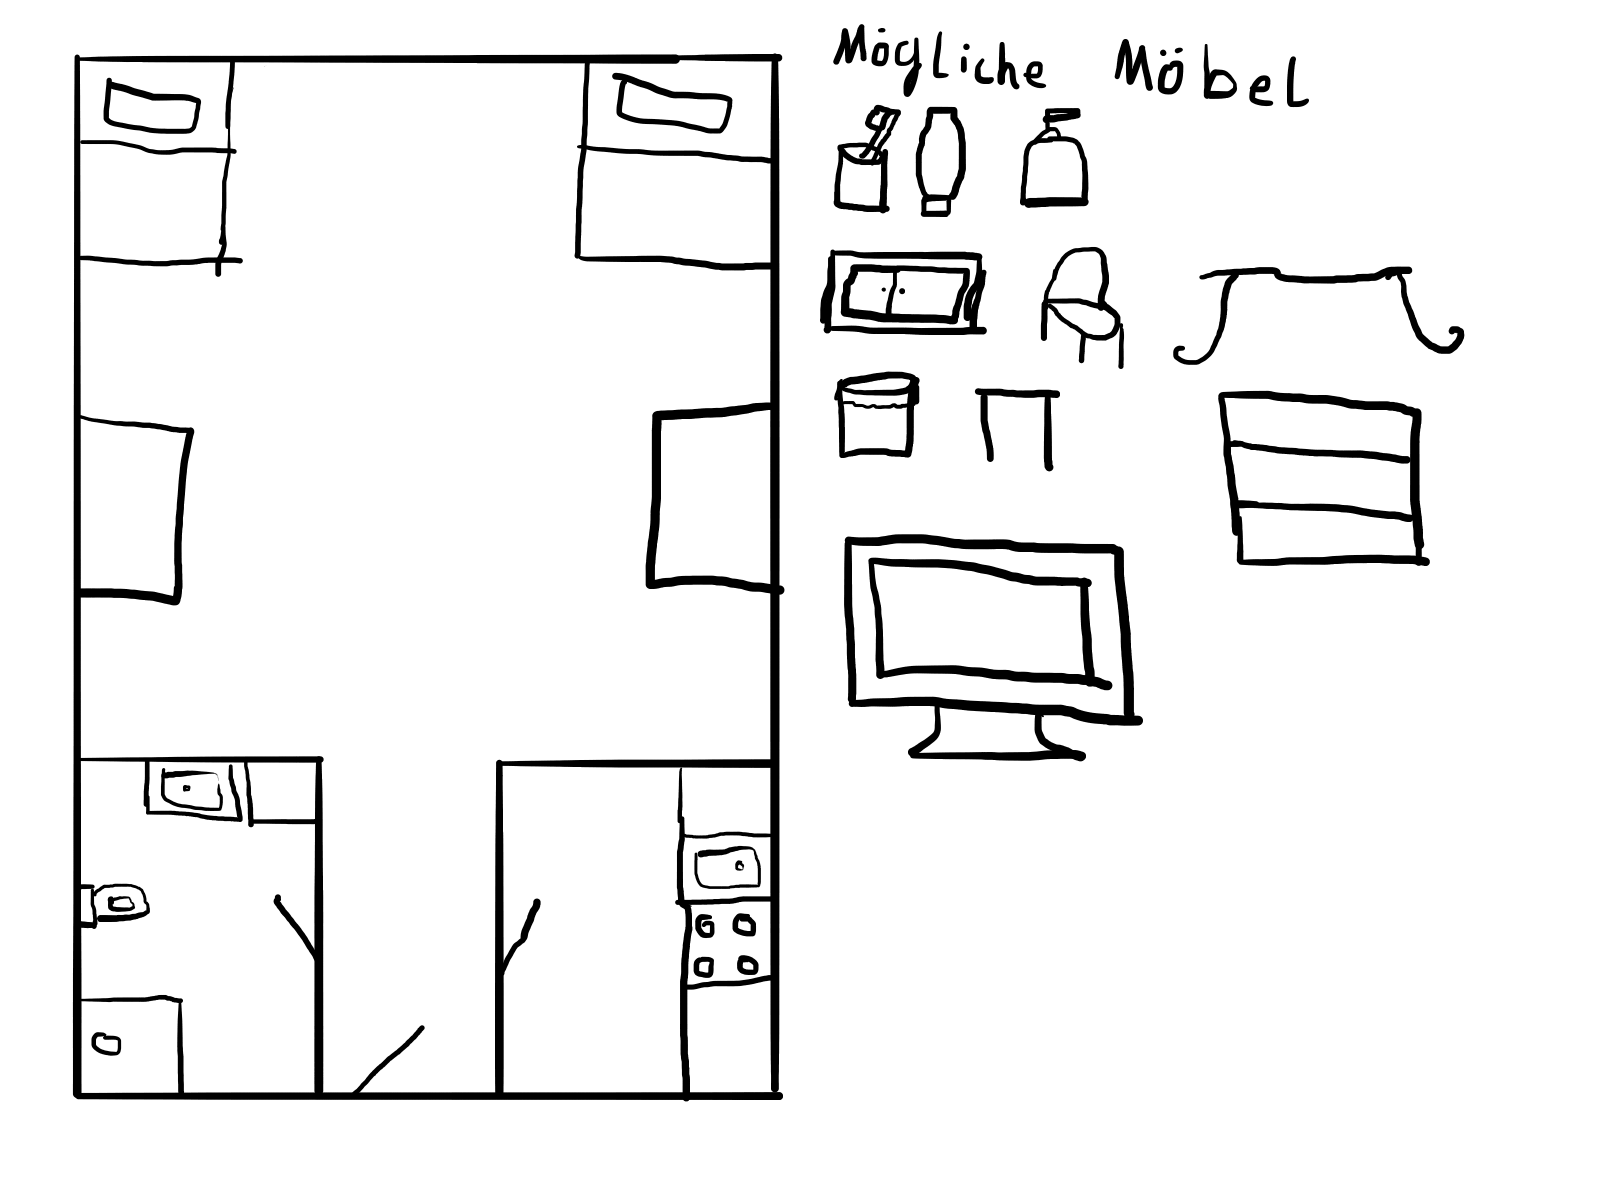 Mögliche Möbel